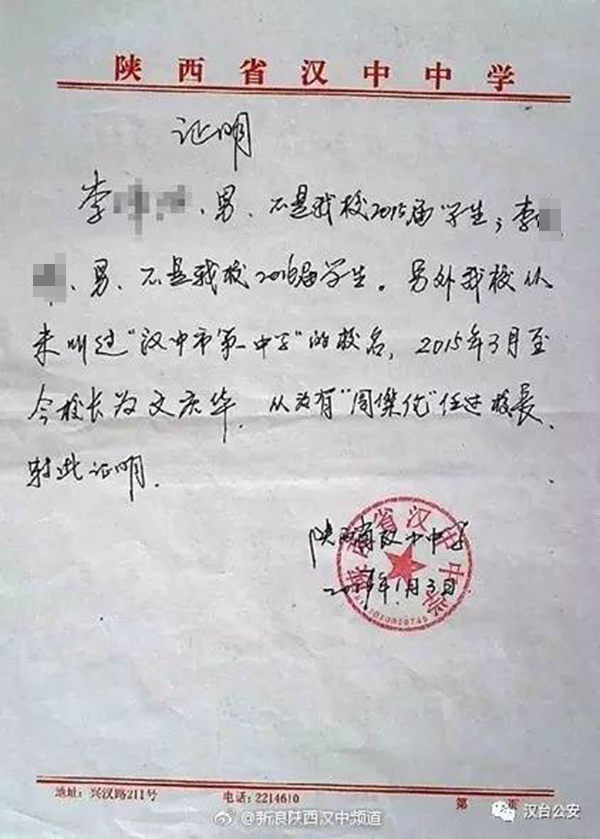 陕西省汉中中学
证明
李 、男、不是我校2015届学生；李
、男、不是我校2016届学生。另外我校从
未叫过“汉中市第一中学”的校名，2015年3月至
今校长为文庆华，从没有“周杰伦”任过校长、
特此证明.
陕西省汉中中学
年1月3日
陕西省汉中中学
地址：兴汉路211号 电话：2214610 第 页
@新浪陕西汉中频道
汉台公安